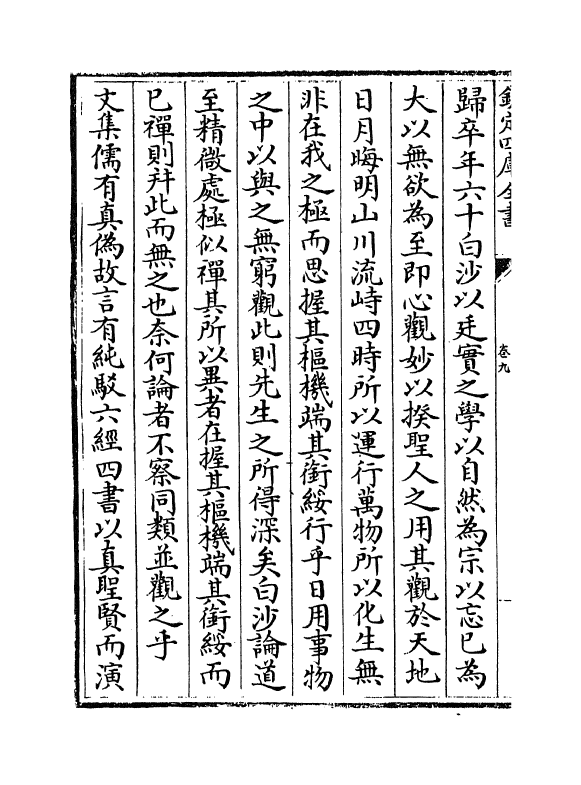 欽定四庫全書
卷九
歸卒年六十白沙以廷實之學以自然為宗以忘已為
大以無欲為至即心觀妙以揆聖人之用其觀於天地
日月晦明山川流峙四時所以運行萬物所以化生無
非在我之極而思握其樞機端其銜綏行乎日用事物
之中以與之無窮觀此則先生之所得深矣白沙論道
至精微處極似禪其所以異者在握其樞機端其銜綏而
已禪則幷此而無之也奈何論者不察同類並觀之乎
文集儒有真偽故言有純駁六經四書以真聖賢而演